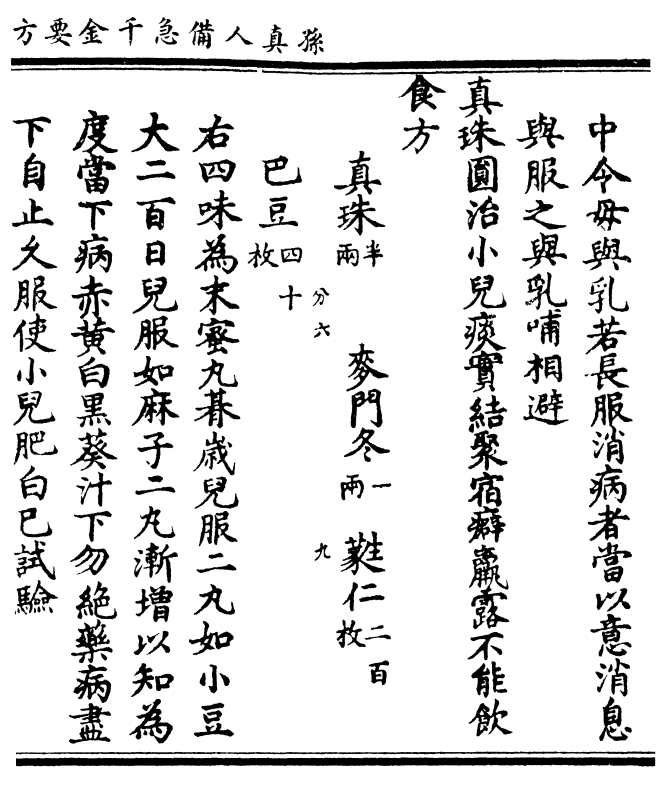 孫真人備急千金要方
中令毋與乳若長服消病者當以意消息
與服之與乳哺相避
真珠圓治小兒痰實結聚宿癖羸露不能飲
食方
真珠半兩 麥門冬一兩 蕤仁二百枚
分六 九
巴豆四十枚
右四味為末蜜丸朞歲兒服二丸如小豆
大二百日兒服如麻子二丸漸增以知為
度當下病赤黃白黑葵汁下勿絕藥病盡
下自止久服使小兒肥白已試驗